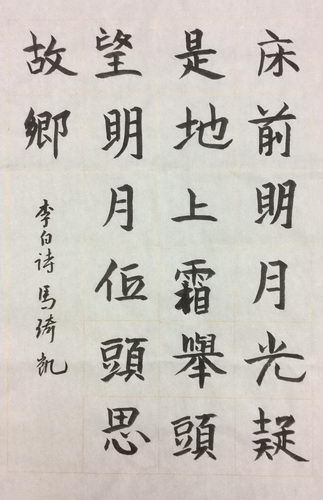 床前明月光疑
是地上霜舉頭
望明月低頭思
故鄉
李白诗馬琦凱